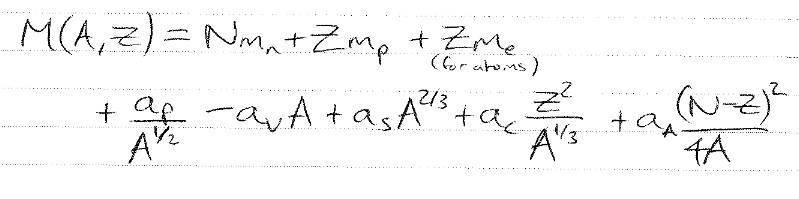 M(A,Z) = Nmₙ + Zmₚ + Zmₑ
(for atoms)
+ aₚ/A^{1/2} - aᵥA + aₛA^{2/3} + a_c Z²/A^{1/3} + a_A (N-Z)²/4A